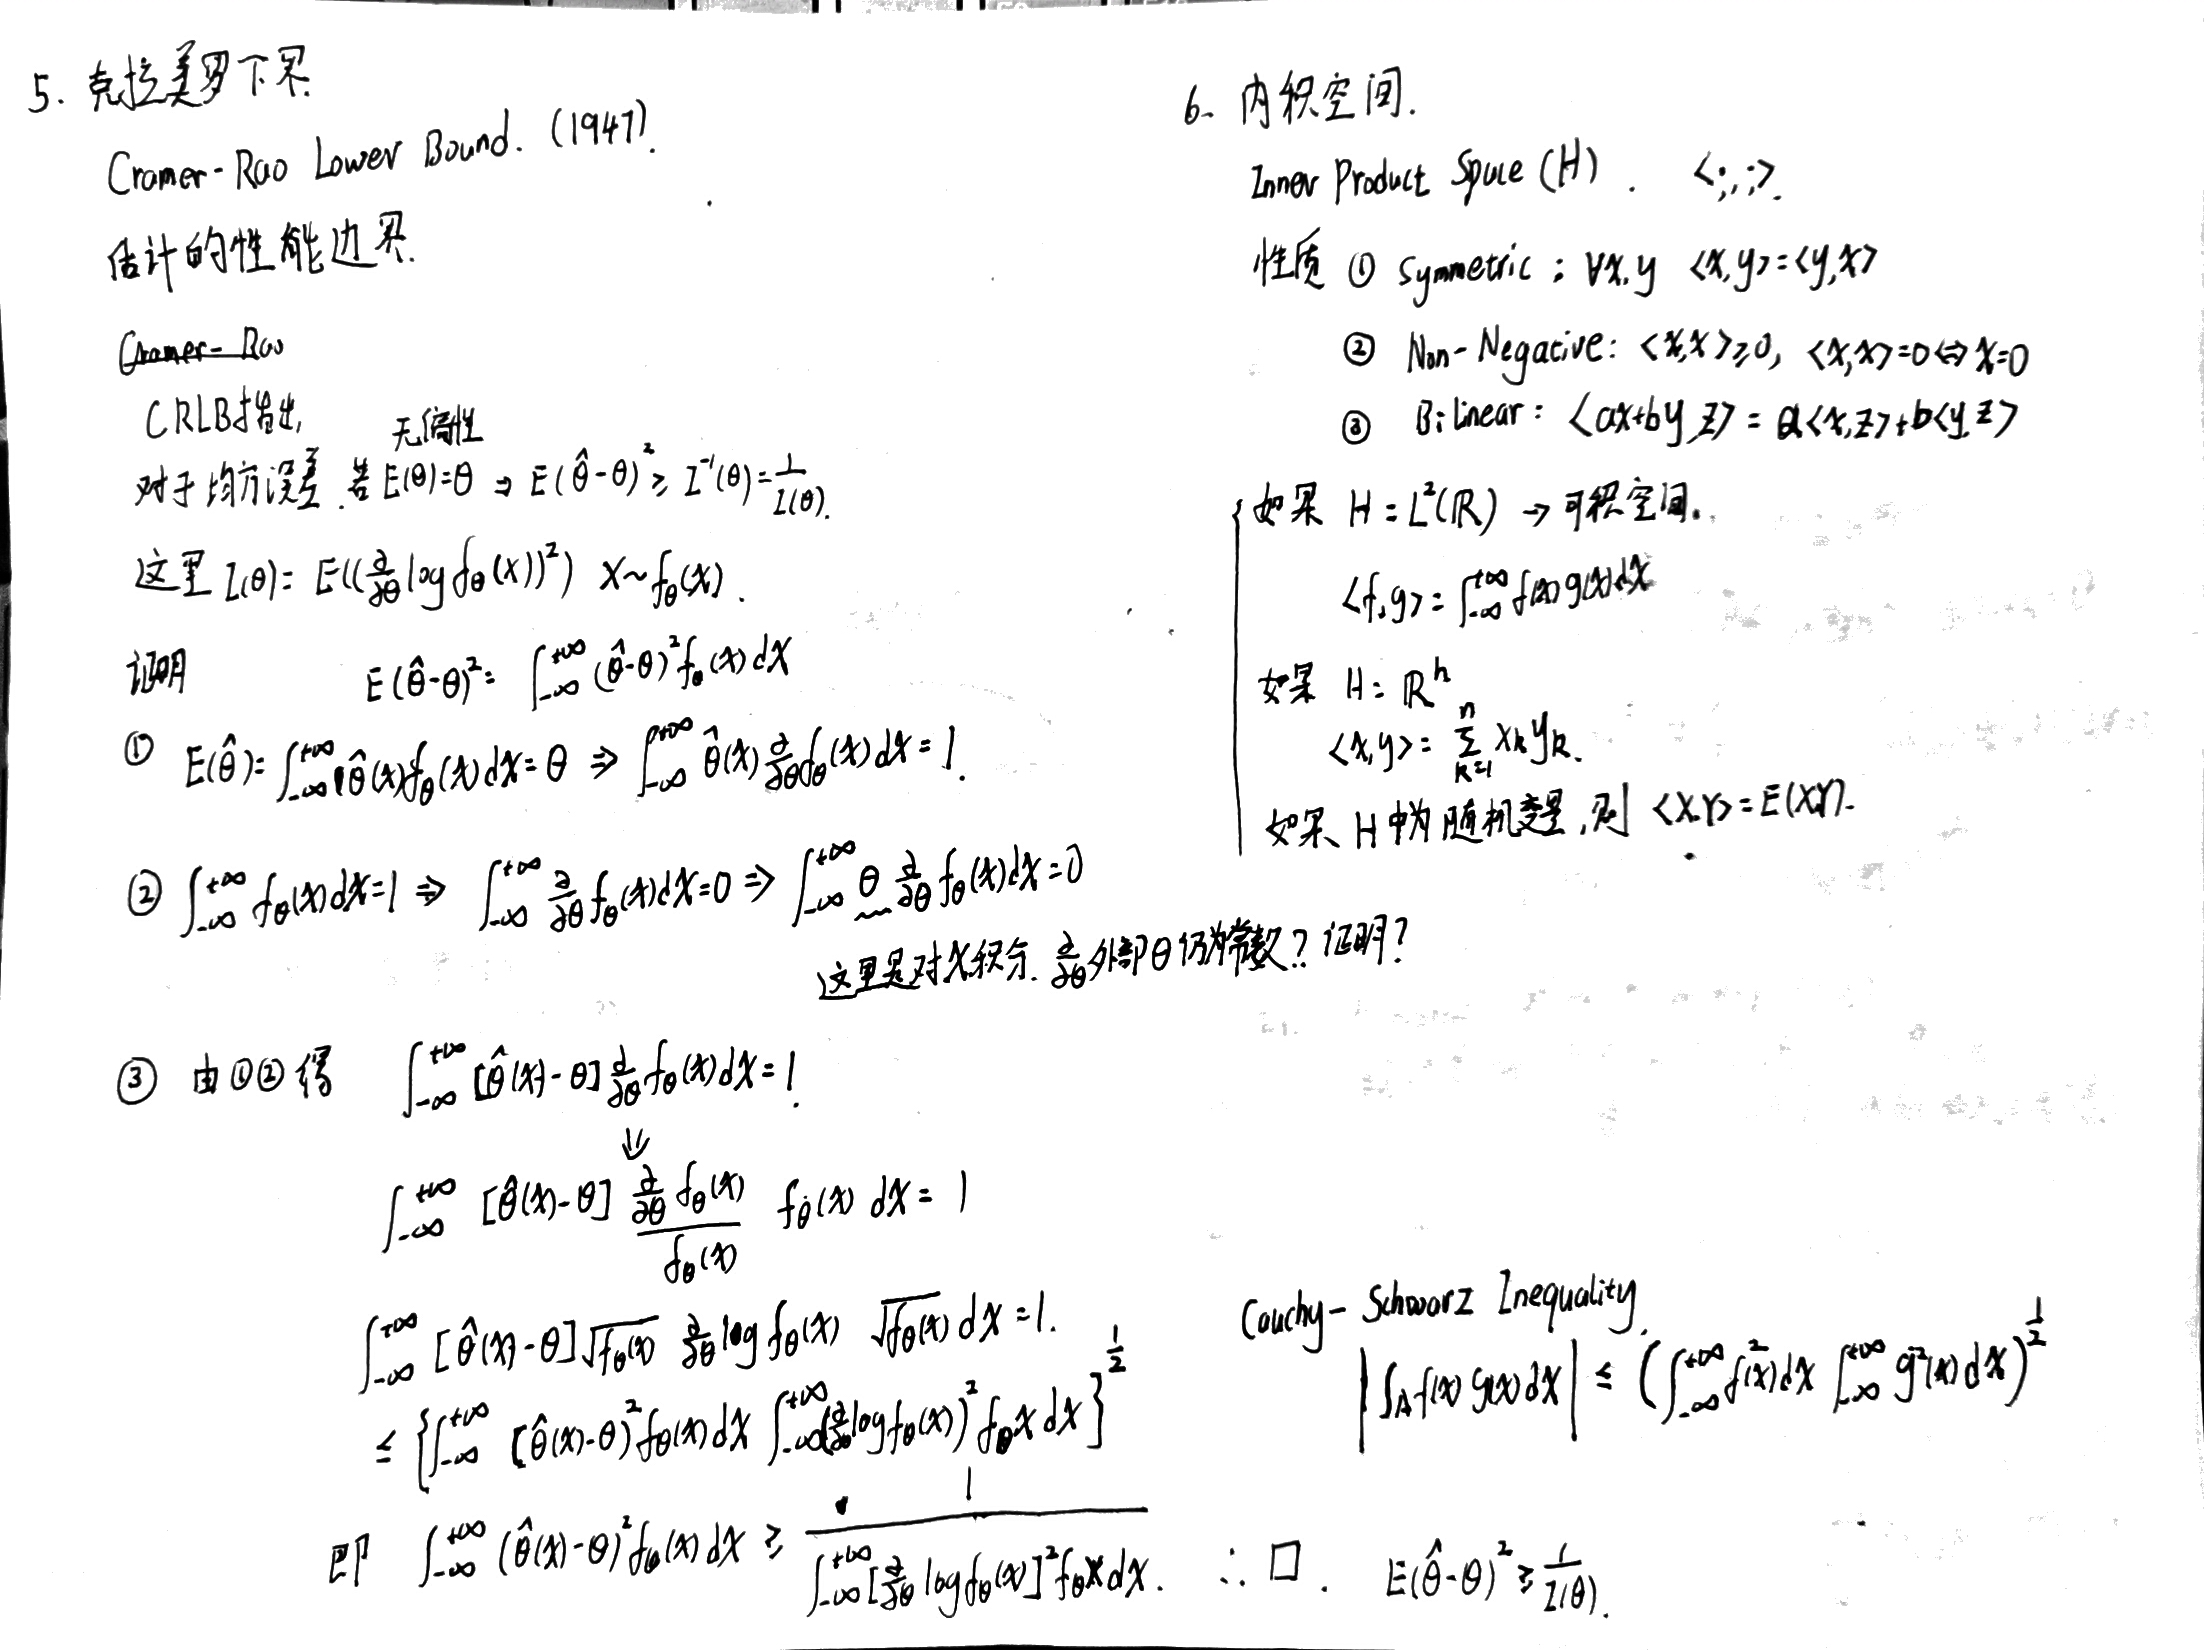 5. 克拉美罗下界.
Cramer-Rao Lower Bound. (1947).
估计的性能边界.
Cramer-Rao
CRLB指出,
无偏性
对于均方误差. 若E(θ)=θ ⇒ E(θ̂-θ)² ≥ I⁻¹(θ)=1/I(θ).
这里 I(θ)= E((∂/∂θ log f_θ(x))²) X~f_θ(x).
证明 E(θ̂-θ)²= ∫_{-∞}^{+∞} (θ̂-θ)² f_θ(x)dx
① E(θ̂)= ∫_{-∞}^{+∞} θ̂(x)f_θ(x)dx=θ ⇒ ∫_{-∞}^{+∞} θ̂(x) ∂/∂θ f_θ(x)dx=1.
② ∫_{-∞}^{+∞} f_θ(x)dx=1 ⇒ ∫_{-∞}^{+∞} ∂/∂θ f_θ(x)dx=0 ⇒ ∫_{-∞}^{+∞} θ ∂/∂θ f_θ(x)dx=0
这里是对x积分. ∂/∂θ外部θ仍为常数? 证明?
③ 由①②得 ∫_{-∞}^{+∞} [θ̂(x)-θ] ∂/∂θ f_θ(x)dx=1.
⇓
∫_{-∞}^{+∞} [θ̂(x)-θ] (∂/∂θ f_θ(x))/f_θ(x) f_θ(x) dx= 1
∫_{-∞}^{+∞} [θ̂(x)-θ]√f_θ(x) ∂/∂θ log f_θ(x) √f_θ(x) dx=1.
≤ {∫_{-∞}^{+∞} [θ̂(x)-θ)² f_θ(x)dx ∫_{-∞}^{+∞} (∂/∂θ log f_θ(x))² f_θ x dx}^{1/2}
即 ∫_{-∞}^{+∞} (θ̂(x)-θ)² f_θ(x)dx ≥ 1/∫_{-∞}^{+∞} [∂/∂θ log f_θ(x)]² f_θ x dx. ∴ □. E(θ̂-θ)² ≥ 1/I(θ).
6. 内积空间.
Inner Product Space (H). <·,·>.
性质 ① Symmetric : ∀x,y <x,y>=<y,x>
② Non-Negative: <x,x>≥0, <x,x>=0⇔x=0
③ Bilinear: <ax+by,z> = a<x,z>+b<y,z>
如果 H=L²(ℝ) → 可积空间.
<f,g>= ∫_{-∞}^{+∞} f(x)g(x)dx
如果 H= ℝⁿ
<x,y>= ∑_{k=1}^{n} x_k y_k.
如果 H中为随机变量,则 <X,Y>=E(XY).
Cauchy-Schwarz Inequality.
|∫_A f(x)g(x)dx| ≤ (∫_{-∞}^{+∞} f²(x)dx ∫_{-∞}^{+∞} g²(x)dx)^{1/2}